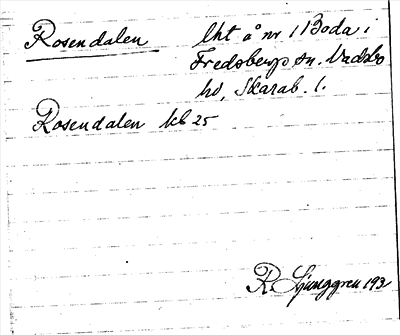 Rosendalen lht å nr 1 Boda i
Fredsbergs sn. Vadsbo
hd, Skarab. l.
Rosendalen kb 25
R. Ljunggren 193